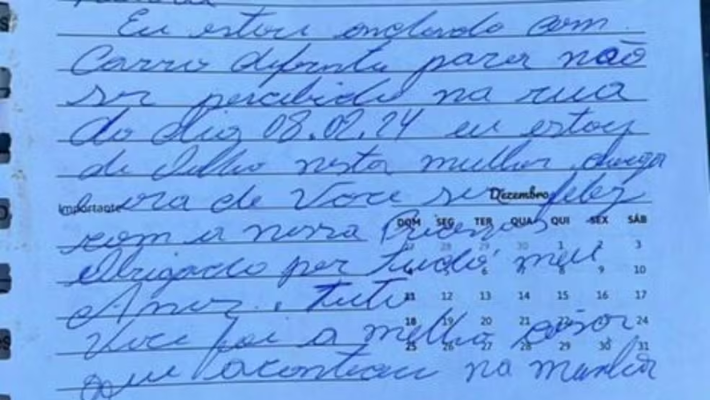 Eu estou andando com
Carro diferente para não
ser percebido na rua
do dia 08.02.24 eu estou
de olho nesta mulher chega
a ora de Você ser feliz
Dezembro
Importante
com a nossa Princesa
DOM SEG TER QUA QUI SEX SÁB
27 28 29 30 1 2 3
Obrigado por tudo meu
6 8 9 10
Amor. tudo
11 12 13 14 15 16 17
Você foi a melhor coisa
18 19 20 21 22 24
25 26 27 28 29 30 31
que aconteceu na minha